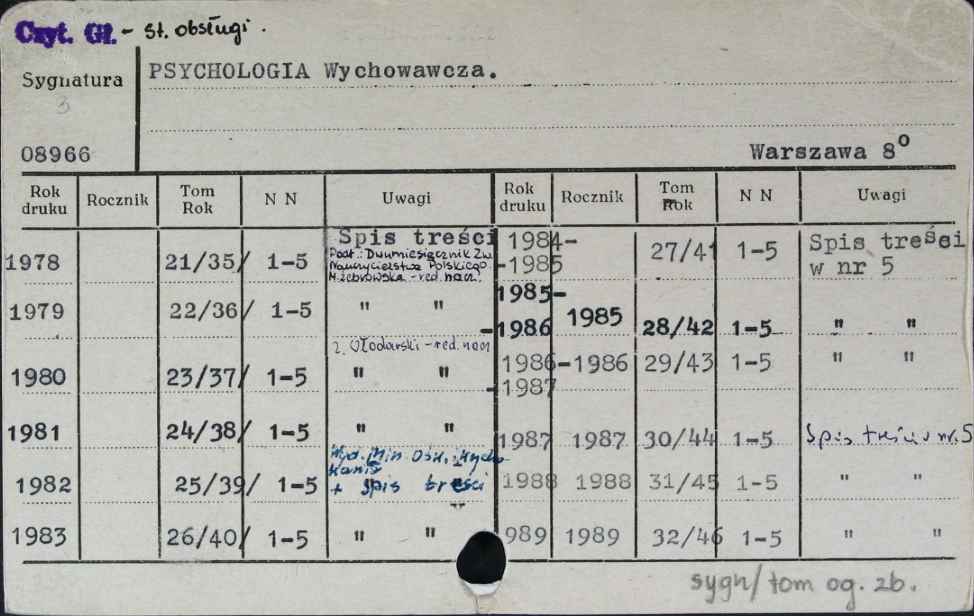 Czyt. Gł. - st. obsługi.
Sygnatura
3
08966
PSYCHOLOGIA Wychowawcza.
Warszawa 8⁰
Rok druku Rocznik Tom Rok N N Uwagi Rok druku Rocznik Tom Rok N N Uwagi
1978 21/35/ 1-5 Spis treści
Podt.: Dwumiesięcznik Zw.
Nauczycielstwa Polskiego.
M. Żebrowska - red. nacz.
1979 22/36/ 1-5 " "
Z. Włodarski - red. nacz
1980 23/37/ 1-5 " "
1981 24/38/ 1-5 " "
Wyd. Min. Ośw. i Wycho
wania
1982 25/39/ 1-5 + spis treści
1983 26/40/ 1-5 " "
1984-
-1985 27/41 1-5 Spis treści
w nr 5
1985-
-1986 1985 28/42 1-5 " "
1986-
-1987 1986 29/43 1-5 " "
1987 1987 30/44 1-5 Spis treści w nr. 5
1988 1988 31/45 1-5 " "
989 1989 32/46 1-5 " "
sygn/tom og. zb.